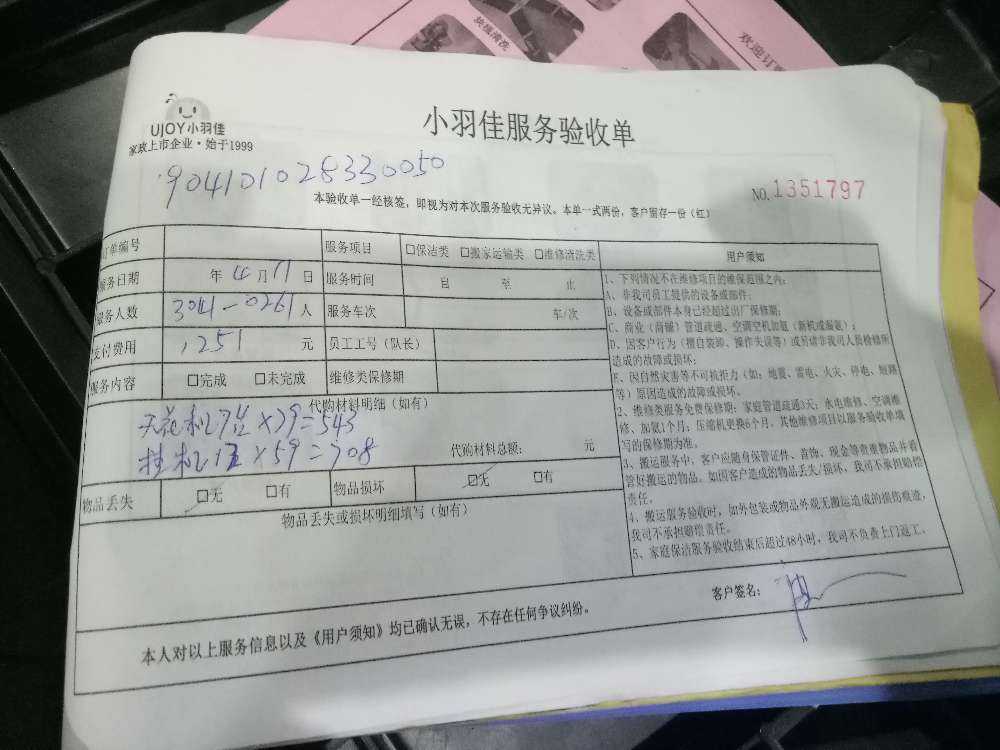 扶梯清洗
欢迎订
UJOY小羽佳
家政上市企业·始于1999
小羽佳服务验收单
904101028330050
NO.1351797
本验收单一经核签，即视为对本次服务验收无异议。本单一式两份，客户留存一份（红）
订单编号 服务项目 □保洁类 □搬家运输类 □维修清洗类
服务日期 年 4 月 11 日 服务时间 自 至 止
服务人数 3041-0261 人 服务车次 车/次
支付费用 1251 元 员工工号（队长）
服务内容 □完成 □未完成 维修类保修期
代购材料明细（如有）
天花机7台×79=543
挂机12×59=708
代购材料总额： 元
物品丢失 □无 □有 物品损坏 □无 □有
物品丢失或损坏明细填写（如有）
用户须知
1、下列情况不在维修项目的维保范围之内：
A、非我司员工提供的设备或部件；
B、设备或部件本身已经超过出厂保修期；
C、商业（商铺）管道疏通，空调空机加氨（新机或漏氨）；
D、因客户行为（擅自装卸、操作失误等）或另请非我司人员检修所
造成的故障或损坏；
E、因自然灾害等不可抗拒力（如：地震、雷电、火灾、停电、短路
等）原因造成的故障或损坏。
2、维修类服务免费保修期：家庭管道疏通3天；水电维修、空调维
修、加氨1个月；压缩机更换6个月。其他维修项目以服务验收单填
写的保修期为准。
3、搬运服务中，客户应随身保管证件、首饰、现金等贵重物品并看
管好搬运的物品。如因客户造成的物品丢失/损坏，我司不承担赔偿
责任。
4、搬运服务验收时，如外包装或物品外观无搬运造成的损伤痕迹，
我司不承担赔偿责任。
5、家庭保洁服务验收结束后超过48小时，我司不负责上门返工。
客户签名：
本人对以上服务信息以及《用户须知》均已确认无误，不存在任何争议纠纷。